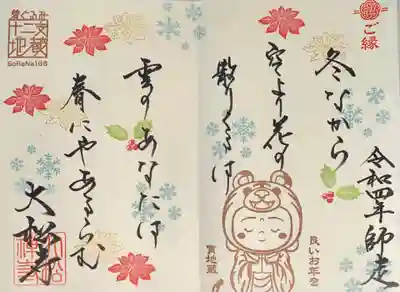 ご縁
令和四年師走
冬ながら
空より花の
散りくるは
良いお年を
寅地蔵
雲のあなたは
春にやあるらむ
大松寺
着ぐるみ
十二支
地蔵
SoRaNa168